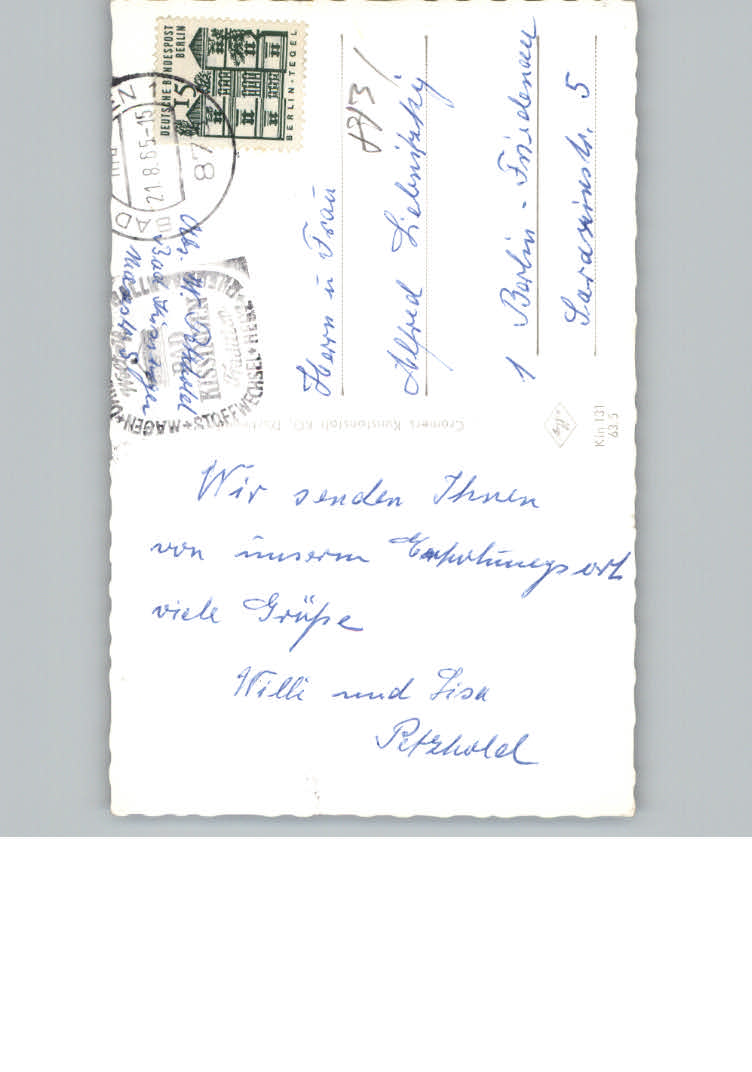 DEUTSCHE BUNDESPOST
BERLIN
15
BERLIN-TEGEL
21.8.65-15
87
BAD
KISSINGEN
MAGEN
STOFFWECHSEL
HERZ
Abs. W. Petzhold
Bad Kissingen
Herrn u Frau
Alfred Liebnitzky
1 Berlin-Friedenau
Sarazinstr. 5
Cramers Kunstanstalt KG,
Kin 131
63 5
Wir senden Ihnen
von unserm Erholungsort
viele Grüße
Willi und Lisa
Petzhold